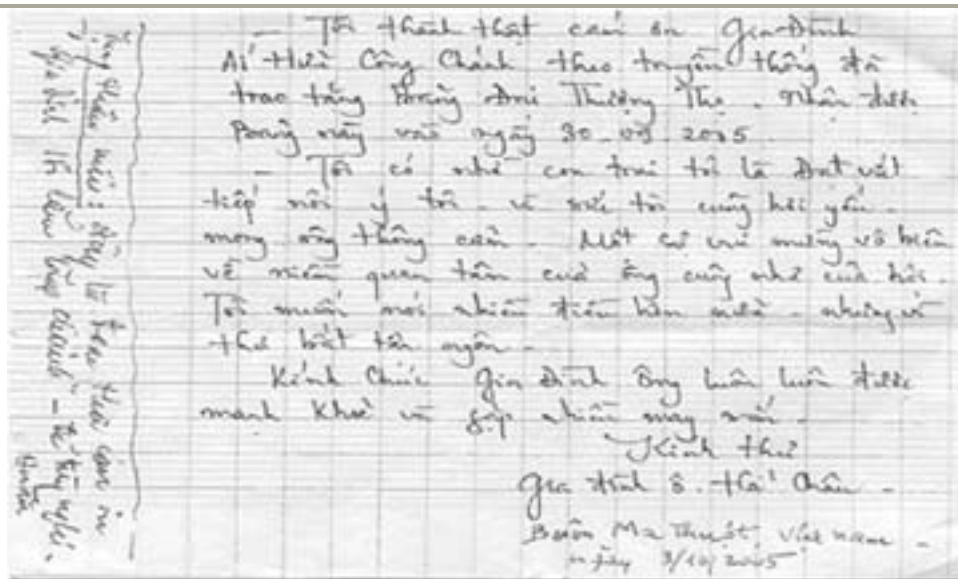 - Tôi thành thật cám ơn Gia-Đình
Ái-Hữu Công Chánh theo truyền thống đã
trao tặng Bảng Đại Thượng Thọ. Nhận được
Bảng này vào ngày 30-09-2005.
- Tôi có nhờ con trai tôi là Đạt viết
tiếp nối ý tôi - vì sức tôi cũng hơi yếu -
mong ông thông cảm. Một sự vui mừng vô biên
về niềm quan tâm của ông cũng như của hội.
Tôi muốn nói nhiều điều hơn nữa - nhưng vì
thư bất tận ngôn -
Kính Chúc Gia đình Ông luôn luôn được
mạnh khoẻ và gặp nhiều may mắn -
Kính thư
Gia đình Ô. Châu -
Buôn Ma Thuột, Việt Nam -
ngày 3/10/2005
đây là
gia đình